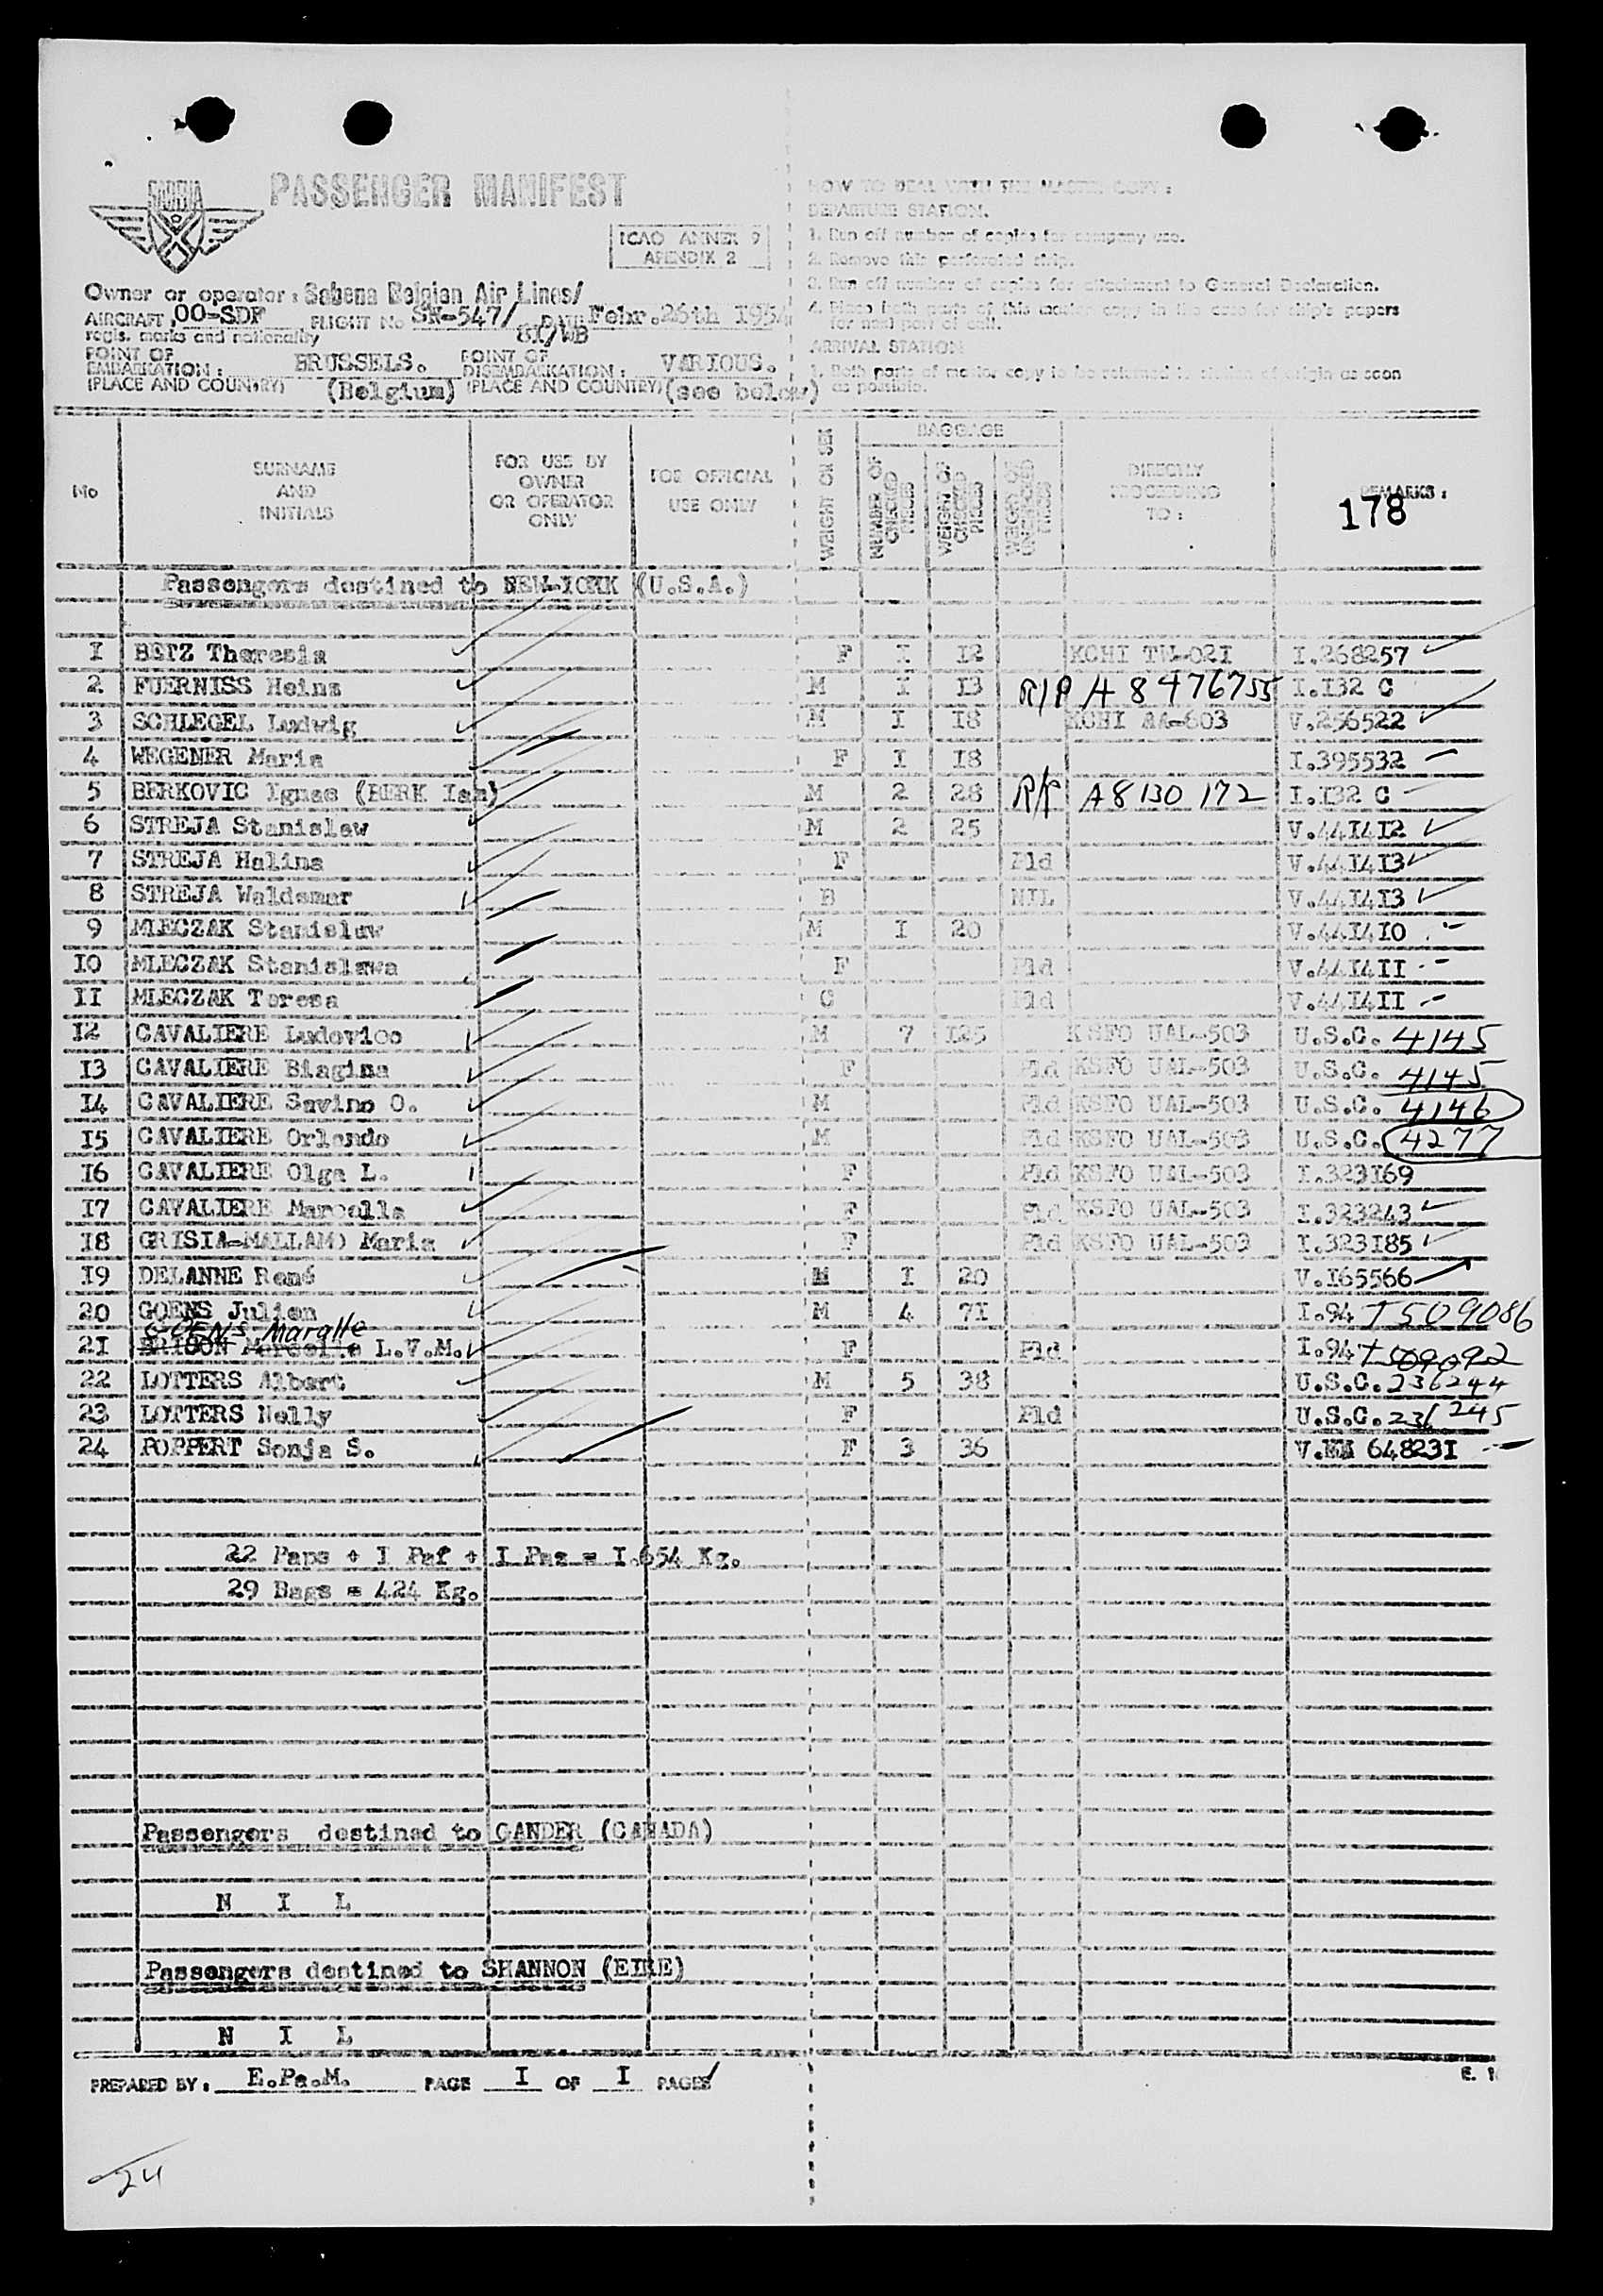 SABENA
PASSENGER MANIFEST
ICAO ANNEX 9
APENDIX 2
Owner or operator : Sabena Belgian Air Lines/
AIRCRAFT, OO-SDF FLIGHT No SN-547/ DATE Febr.26th 1954
regis. marks and nationality 81/WB
POINT OF EMBARKATION : BRUSSELS. POINT OF DISEMBARKATION : VARIOUS.
(PLACE AND COUNTRY) (Belgium) (PLACE AND COUNTRY) (see below)
HOW TO DEAL WITH THE MASTER COPY :
DEPARTURE STATION.
1. Run off number of copies for company use.
2. Remove this perforated strip.
3. Run off number of copies for attachment to General Declaration.
4. Place both parts of this master copy in the case for ship's papers
for next port of call.
ARRIVAL STATION
1. Both parts of master copy to be returned to station of origin as soon
as possible.
No
SURNAME
AND
INITIALS
FOR USE BY
OWNER
OR OPERATOR
ONLY
FOR OFFICIAL
USE ONLY
WEIGHT OR SEX
BAGGAGE
NUMBER OF CHECKED PIECES
WEIGHT OF CHECKED PIECES
WEIGHT OF UNCHECKED PIECES
DIRECTLY
PROCEEDING
TO :
REMARKS :
178
Passengers destined to NEW-YORK (U.S.A.)
I BETZ Theresia F I I2 KCHI TW-02I I.268257
2 FUERNISS Heinz M I I3 R/P A8476755 I.I32 C
3 SCHLEGEL Ludwig M I I8 KCHI AA-603 V.256522
4 WEGENER Maria F I I8 I.395532
5 BERKOVIC Ignas (BERK Ian) M 2 28 R/P A8130172 I.I32 C
6 STREJA Stanislaw M 2 25 V.44I4I2
7 STREJA Halina F Pld V.44I4I3
8 STREJA Waldemar B NIL V.44I4I3
9 MLECZAK Stanislaw M I 20 V.44I4IO
IO MLECZAK Stanislawa F Pld V.44I4II
II MLECZAK Teresa C Pld V.44I4II
I2 CAVALIERE Ludovico M 7 I25 KSFO UAL-503 U.S.C. 4145
I3 CAVALIERE Biagina F Pld KSFO UAL-503 U.S.C. 4145
I4 CAVALIERE Savino O. M Pld KSFO UAL-503 U.S.C. 4146
I5 CAVALIERE Orlando M Pld KSFO UAL-503 U.S.C. 4277
I6 CAVALIERE Olga L. F Pld KSFO UAL-503 I.323I69
I7 CAVALIERE Marcella F Pld KSFO UAL-503 I.323243
I8 GRISIA-MALLAMO Maria F Pld KSFO UAL-503 I.323I85
I9 DELANNE René M I 20 V.I65566
20 GOENS Julien M 4 7I I.94 T509086
GOENS Maralle
2I BRISON Marcelle L.V.M. F Pld I.94 T509092
22 LOTTERS Albert M 5 38 U.S.C. 236244
23 LOTTERS Nelly F Pld U.S.C. 236245
24 POPPERT Sonja S. F 3 36 V.EM 64823I
22 Paps + I Paf + I Paz = I.654 Kg.
29 Bags = 424 Kg.
Passengers destined to GANDER (CANADA)
N I L
Passengers destined to SHANNON (EIRE)
N I L
PREPARED BY : E.Pa.M. PAGE I OF I PAGES
24